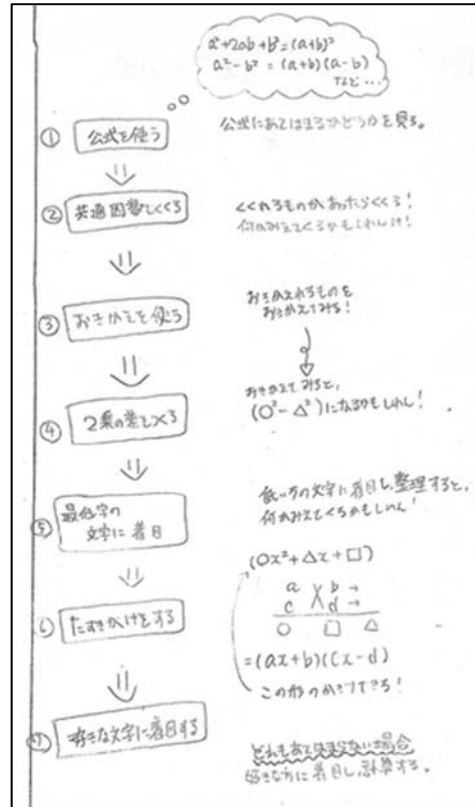 a²+2ab+b²=(a+b)²
a²-b²=(a+b)(a-b)
など…
① 公式を使う
公式にあてはまるかどうかを見る。
② 共通因数でくくる
くくれるものがあったらくくる!
何かみえてくるかもしれんけ!
③ おきかえを使う
おきかえれるものを
おきかえてみる!
④ 2乗の差をつくる
おきかえてみると、
(○²-△²)になるかもしれん!
⑤ 最低字の
文字に着目
低い方の文字に着目し、整理すると、
何かみえてくるかもしれん!
⑥ たすきかけをする
(○x²+△x+□)
a b →
c d →
○ □ △
=(ax+b)(cx-d)
この形の
⑦ 好きな文字に着目する
どれもあてはまらない場合
好きな方に着目し、計算する。